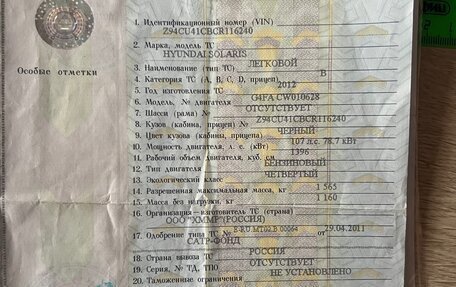 1. Идентификационный номер (VIN)
Z94CU41CBCR116240
2. Марка, модель ТС
HYUNDAI SOLARIS
3. Наименование (тип ТС)
ЛЕГКОВОЙ
4. Категория ТС (A, B, C, D, прицеп)
B
5. Год изготовления ТС
2012
6. Модель, № двигателя
G4FA CW010628
7. Шасси (рама) №
ОТСУТСТВУЕТ
8. Кузов (кабина, прицеп) №
Z94CU41CBCR116240
9. Цвет кузова (кабины, прицепа)
ЧЕРНЫЙ
10. Мощность двигателя, л. с. (кВт)
107 л.с. 78.7 кВт
11. Рабочий объем двигателя, куб. см
1396
12. Тип двигателя
БЕНЗИНОВЫЙ
13. Экологический класс
ЧЕТВЕРТЫЙ
14. Разрешенная максимальная масса, кг
1 565
15. Масса без нагрузки, кг
1 160
16. Организация—изготовитель ТС (страна)
ООО "ХММР" (РОССИЯ)
17. Одобрение типа ТС №
от 29.04.2011
САТР-ФОНД
18. Страна вывоза ТС
РОССИЯ
19. Серия, № ТД, ТПО
ОТСУТСТВУЕТ
20. Таможенные ограничения
НЕ УСТАНОВЛЕНО
Особые отметки